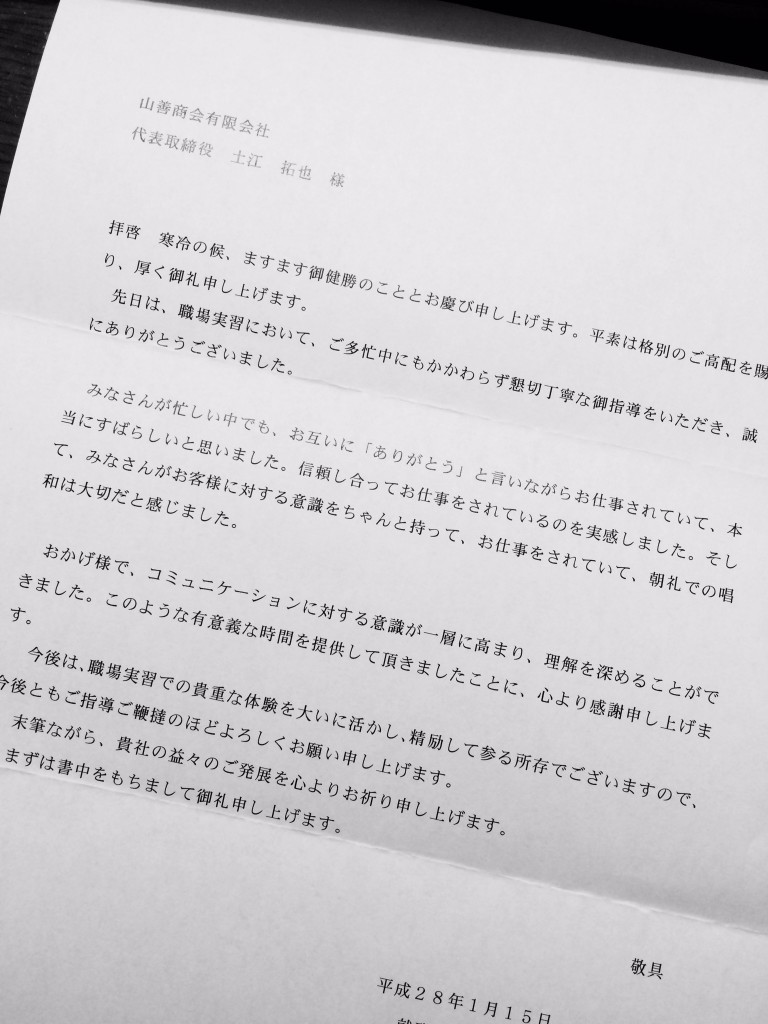 山善商会有限会社
代表取締役　土江　拓也　様
拝啓　寒冷の候、ますます御健勝のこととお慶び申し上げます。平素は格別のご高配を賜
り、厚く御礼申し上げます。
先日は、職場実習において、ご多忙中にもかかわらず懇切丁寧な御指導をいただき、誠
にありがとうございました。
みなさんが忙しい中でも、お互いに「ありがとう」と言いながらお仕事されていて、本
当にすばらしいと思いました。信頼し合ってお仕事をされているのを実感しました。そし
て、みなさんがお客様に対する意識をちゃんと持って、お仕事をされていて、朝礼での唱
和は大切だと感じました。
おかげ様で、コミュニケーションに対する意識が一層に高まり、理解を深めることがで
きました。このような有意義な時間を提供して頂きましたことに、心より感謝申し上げま
す。
今後は、職場実習での貴重な体験を大いに活かし、精励して参る所存でございますので、
今後ともご指導ご鞭撻のほどよろしくお願い申し上げます。
末筆ながら、貴社の益々のご発展を心よりお祈り申し上げます。
まずは書中をもちまして御礼申し上げます。
敬具
平成２８年１月１５日